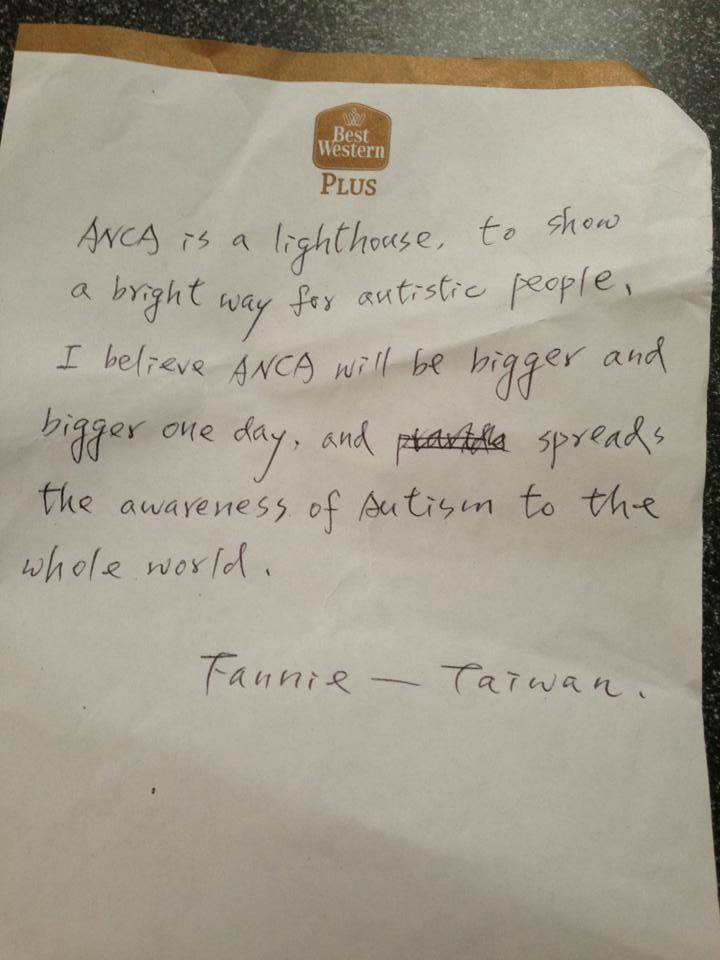 Best
Western
PLUS
ANCA is a lighthouse, to show
a bright way for autistic people,
I believe ANCA will be bigger and
bigger one day, and spreads
the awareness of Autism to the
whole world.
Fannie — Taiwan.